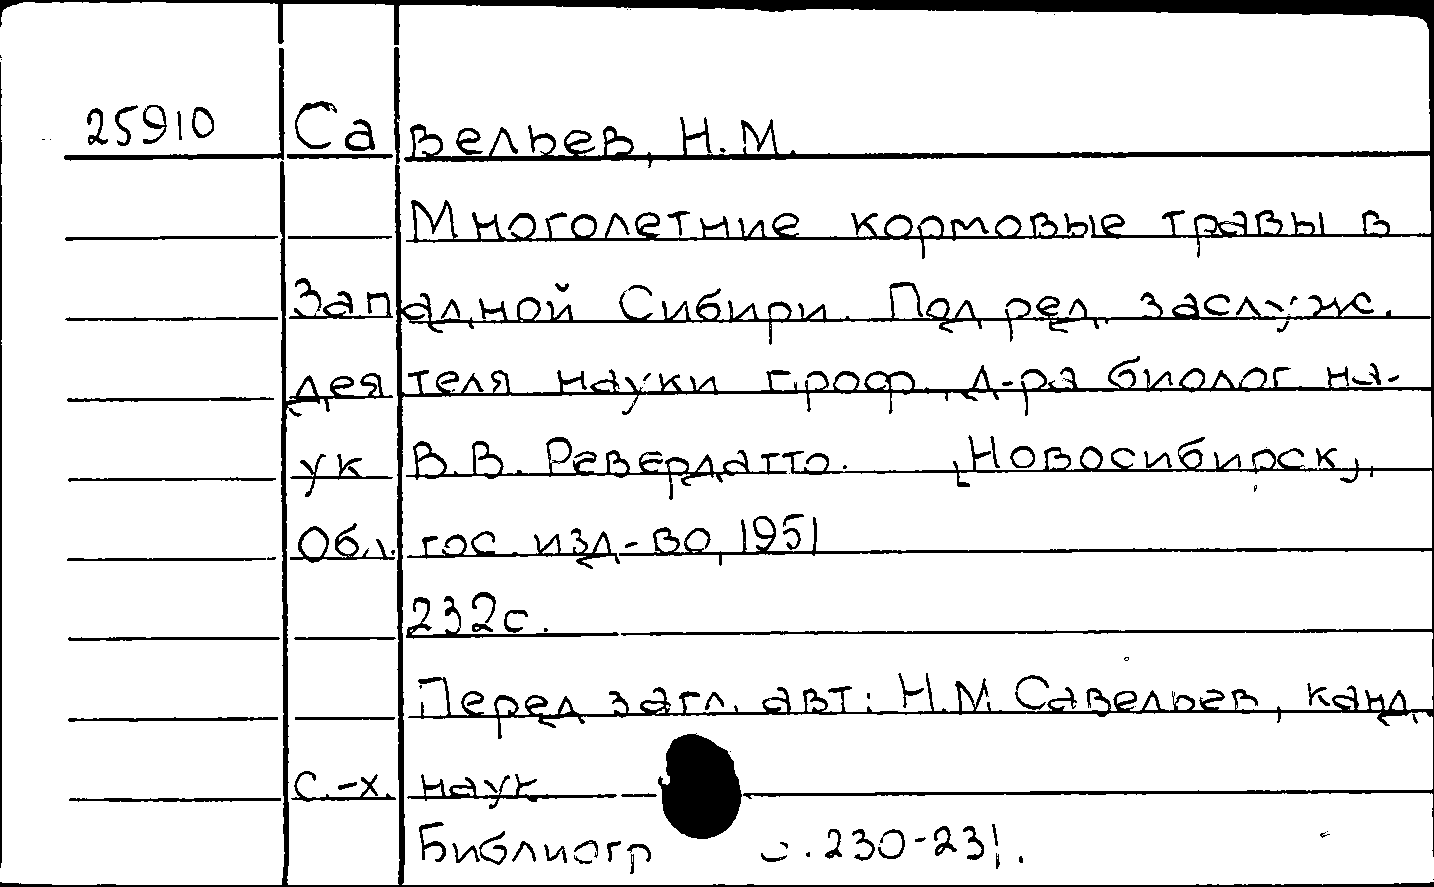 25910 Савельев, Н.М.
Многолетние кормовые травы в
Западной Сибири. Под ред. заслуж.
деятеля науки проф. д-ра биолог. на-
ук В.В. Ревердатто. [Новосибирск],
Обл. гос. изд-во, 1951
232с.
Перед загл. авт: Н.М. Савельев, канд.
с.-х. наук
Библиогр с. 230-231.